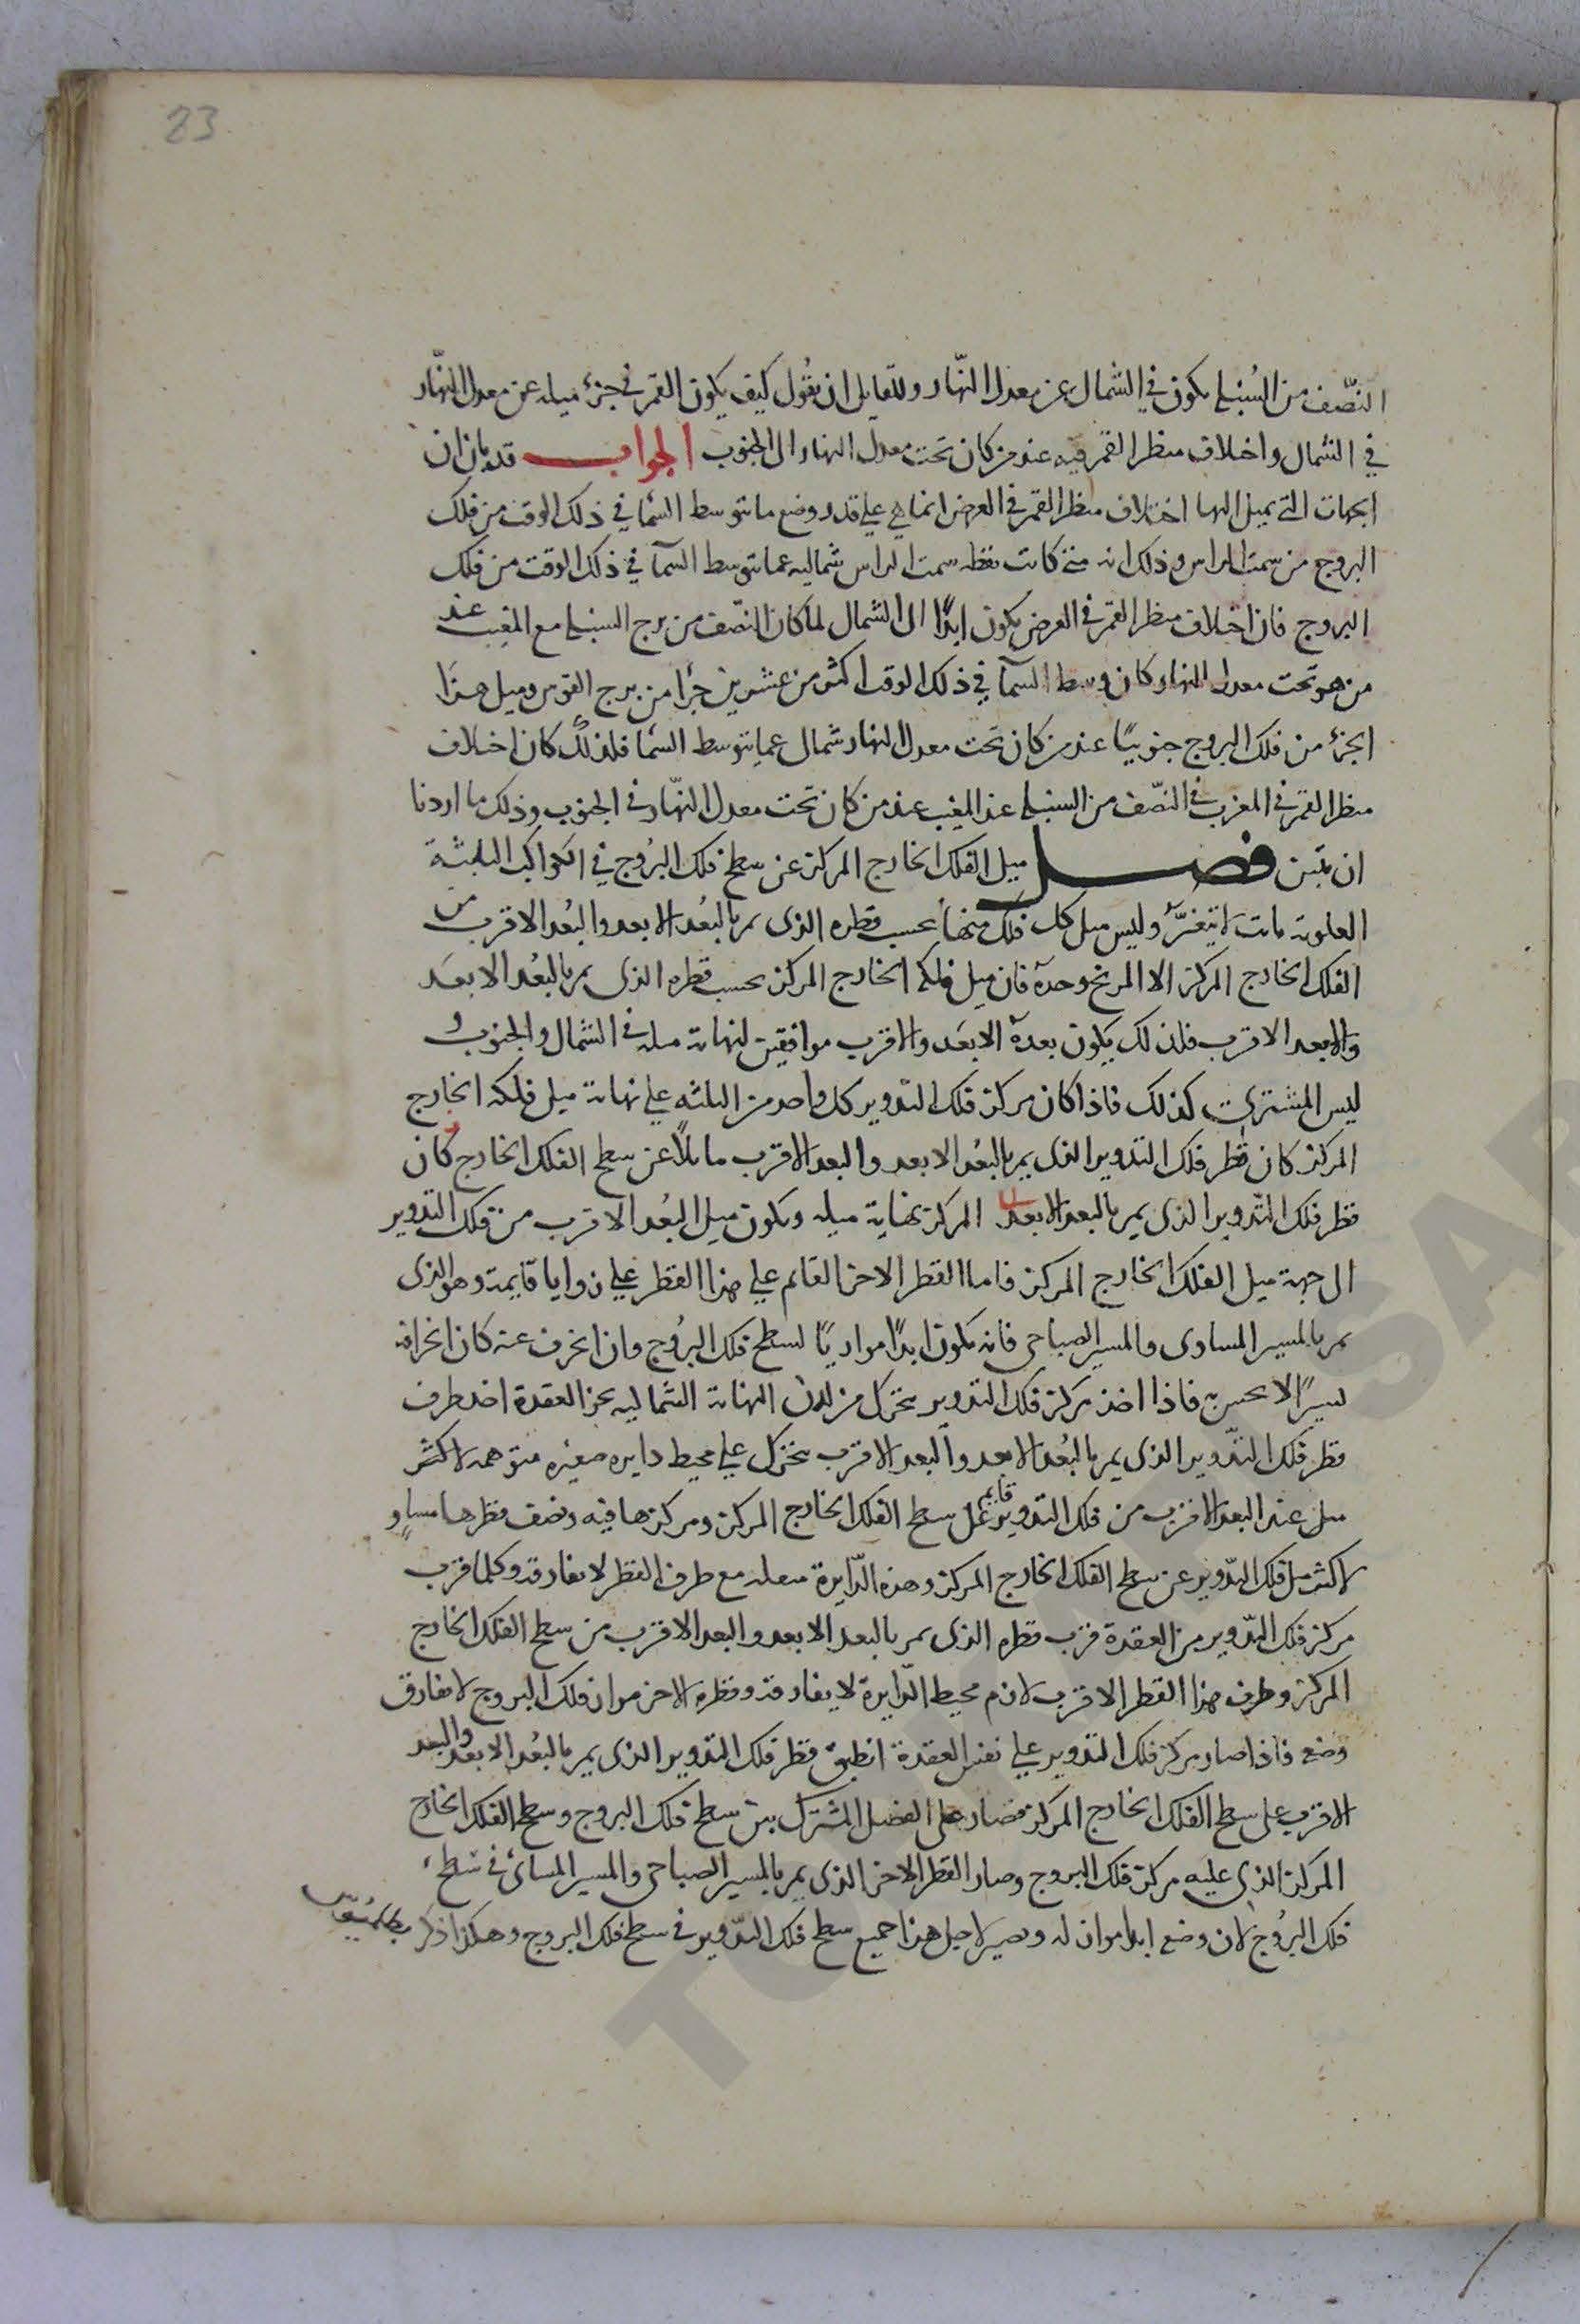 23
النصّف من السُنبله يكون في الشمال عن معدل النهّار وللقايل ان يقُول كيف يكون القمر في جزء ميله عن معدل النهّار
في الشمال واختلاف منظر القمر فيه عند من كان تحت معدل النهار الى الجنوب الجواب قد بان ان
الجهات التي يميل اليها اختلاف منظر القمر في العرض انما هي على قدر وضع ما يتوسط السّما في ذلك الوقت من فلك
البروج من سمت الراس وذلك انه متى كانت نقطه سمت الراس شماليه عما يتوسط السمآ في ذلك الوقت من فلك
البروج فان اختلاف منظر القمر في العرض يكون ابدًا الى الشمال لما كان النصّف من برج السنبله مع المغيب عند
من هو تحت معدل النهار كان وسط السمآ في ذلك الوقت اكثر من عشرين جزًا من برج القوس وميل هذا
الجزء من فلك البروج جنوبيًا عند من كان تحت معدل النهار شمال عما يتوسط السّما فلذلك كان اختلاف
منظر القمر في المغرب في النصّف من السنبله عند المغيب عند من كان تحت معدل النهّار في الجنوب وذلك ما اردنا
ان نبين فصل ميل الفلك الخارج المركز عن سطح فلك البرُوج في الكواكب الثلثة
العلويه ثابت لا يتغيّر وليس ميل كل فلك منها بحسب قطره الذى يمر بالبُعد الابعد والبُعد الاقرب من
الفلك الخارج المركز الا المريخ وحدهُ فان ميل فلكه الخارج المركز بحسب قطره الذى يمر بالبُعد الابعَد
والابعد الاقرب فلذلك يكون بعدهُ الابعَد والاقرب موافقين لنهاية ميله في الشمال والجنوب و
ليس المشترى كذلك فاذا كان مركز فلك التدّوير كل واحد من الثلثه على نهاية ميل فلكه الخارج
المركز كان قُطر فلك التدوير الذى يمر بالبُعد الابعد والبعد الاقرب مايلًا عن سطح الفلك الخارج كان
قطر فلك التّدوير الذى يمر بالبعد الابعد المركز نهاية ميله ويكون ميل البُعد الاقرب من فلك التدوير
الى جهة ميل الفلك الخارج المركز فاما القطر الاخر القايم على هذا القطر على زوايا قايمة وهو الذى
يمر بالمسير المساوى والمسير الصباحى فانه يكون ابدًا موازيًا لسطح فلك البرُوج وان انحرف عنه كان انحرافه
يسيرًا لا يحس به فاذا اخذ مركز فلك التدوير يتحرك من لدن النهاية الشماليه نحو العقدة اخذ طرف
قطر فلك التدّوير الذى يمر بالبُعد الابعد والبعد الاقرب يتحرك على محيط دايره صغيره متوهمه لاكثر
ميل عند البعد الاقرب من فلك التدوير قايم على سطح الفلك الخارج المركز ومركزها فيه ونصف قطرها مساوٍ
لاكثر ميل فلك التدّوير عن سطح الفلك الخارج المركز وهذه الدّايرة منتقله مع طرف القطر لا تفارقه وكلما قرب
مركز فلك التّدوير من العقدة قرب قطره الذى يمر بالبعد الابعد والبعد الاقرب من سطح الفلك الخارج
المركز وطرف هذا القطر الاقرب لازم محيط الدّايرة لا يفارقه وقطره الاخر مواز فلك البروج لا يفارق
وضعه فاذا صار مركز فلك التدوير على نفس العقدة انطبق قطر فلك التدوير الذى يمر بالبُعد الابعد والبعد
الاقرب على سطح الفلك الخارج المركز فصار على الفصل المشترك بين سطح فلك البروج وسطح الفلك الخارج
المركز الذى عليه مركز فلك البروج وصار القطر الاخر الذى يمر بالمسير الصباحى والمسير المسائى في سَطح
فلك البرُوج لان وضعه ابدا مواز له ويصير لاجل هذا جميع سطح فلك التدّوير في سطح فلك البروج وهكذا ذكر بطلميُوس